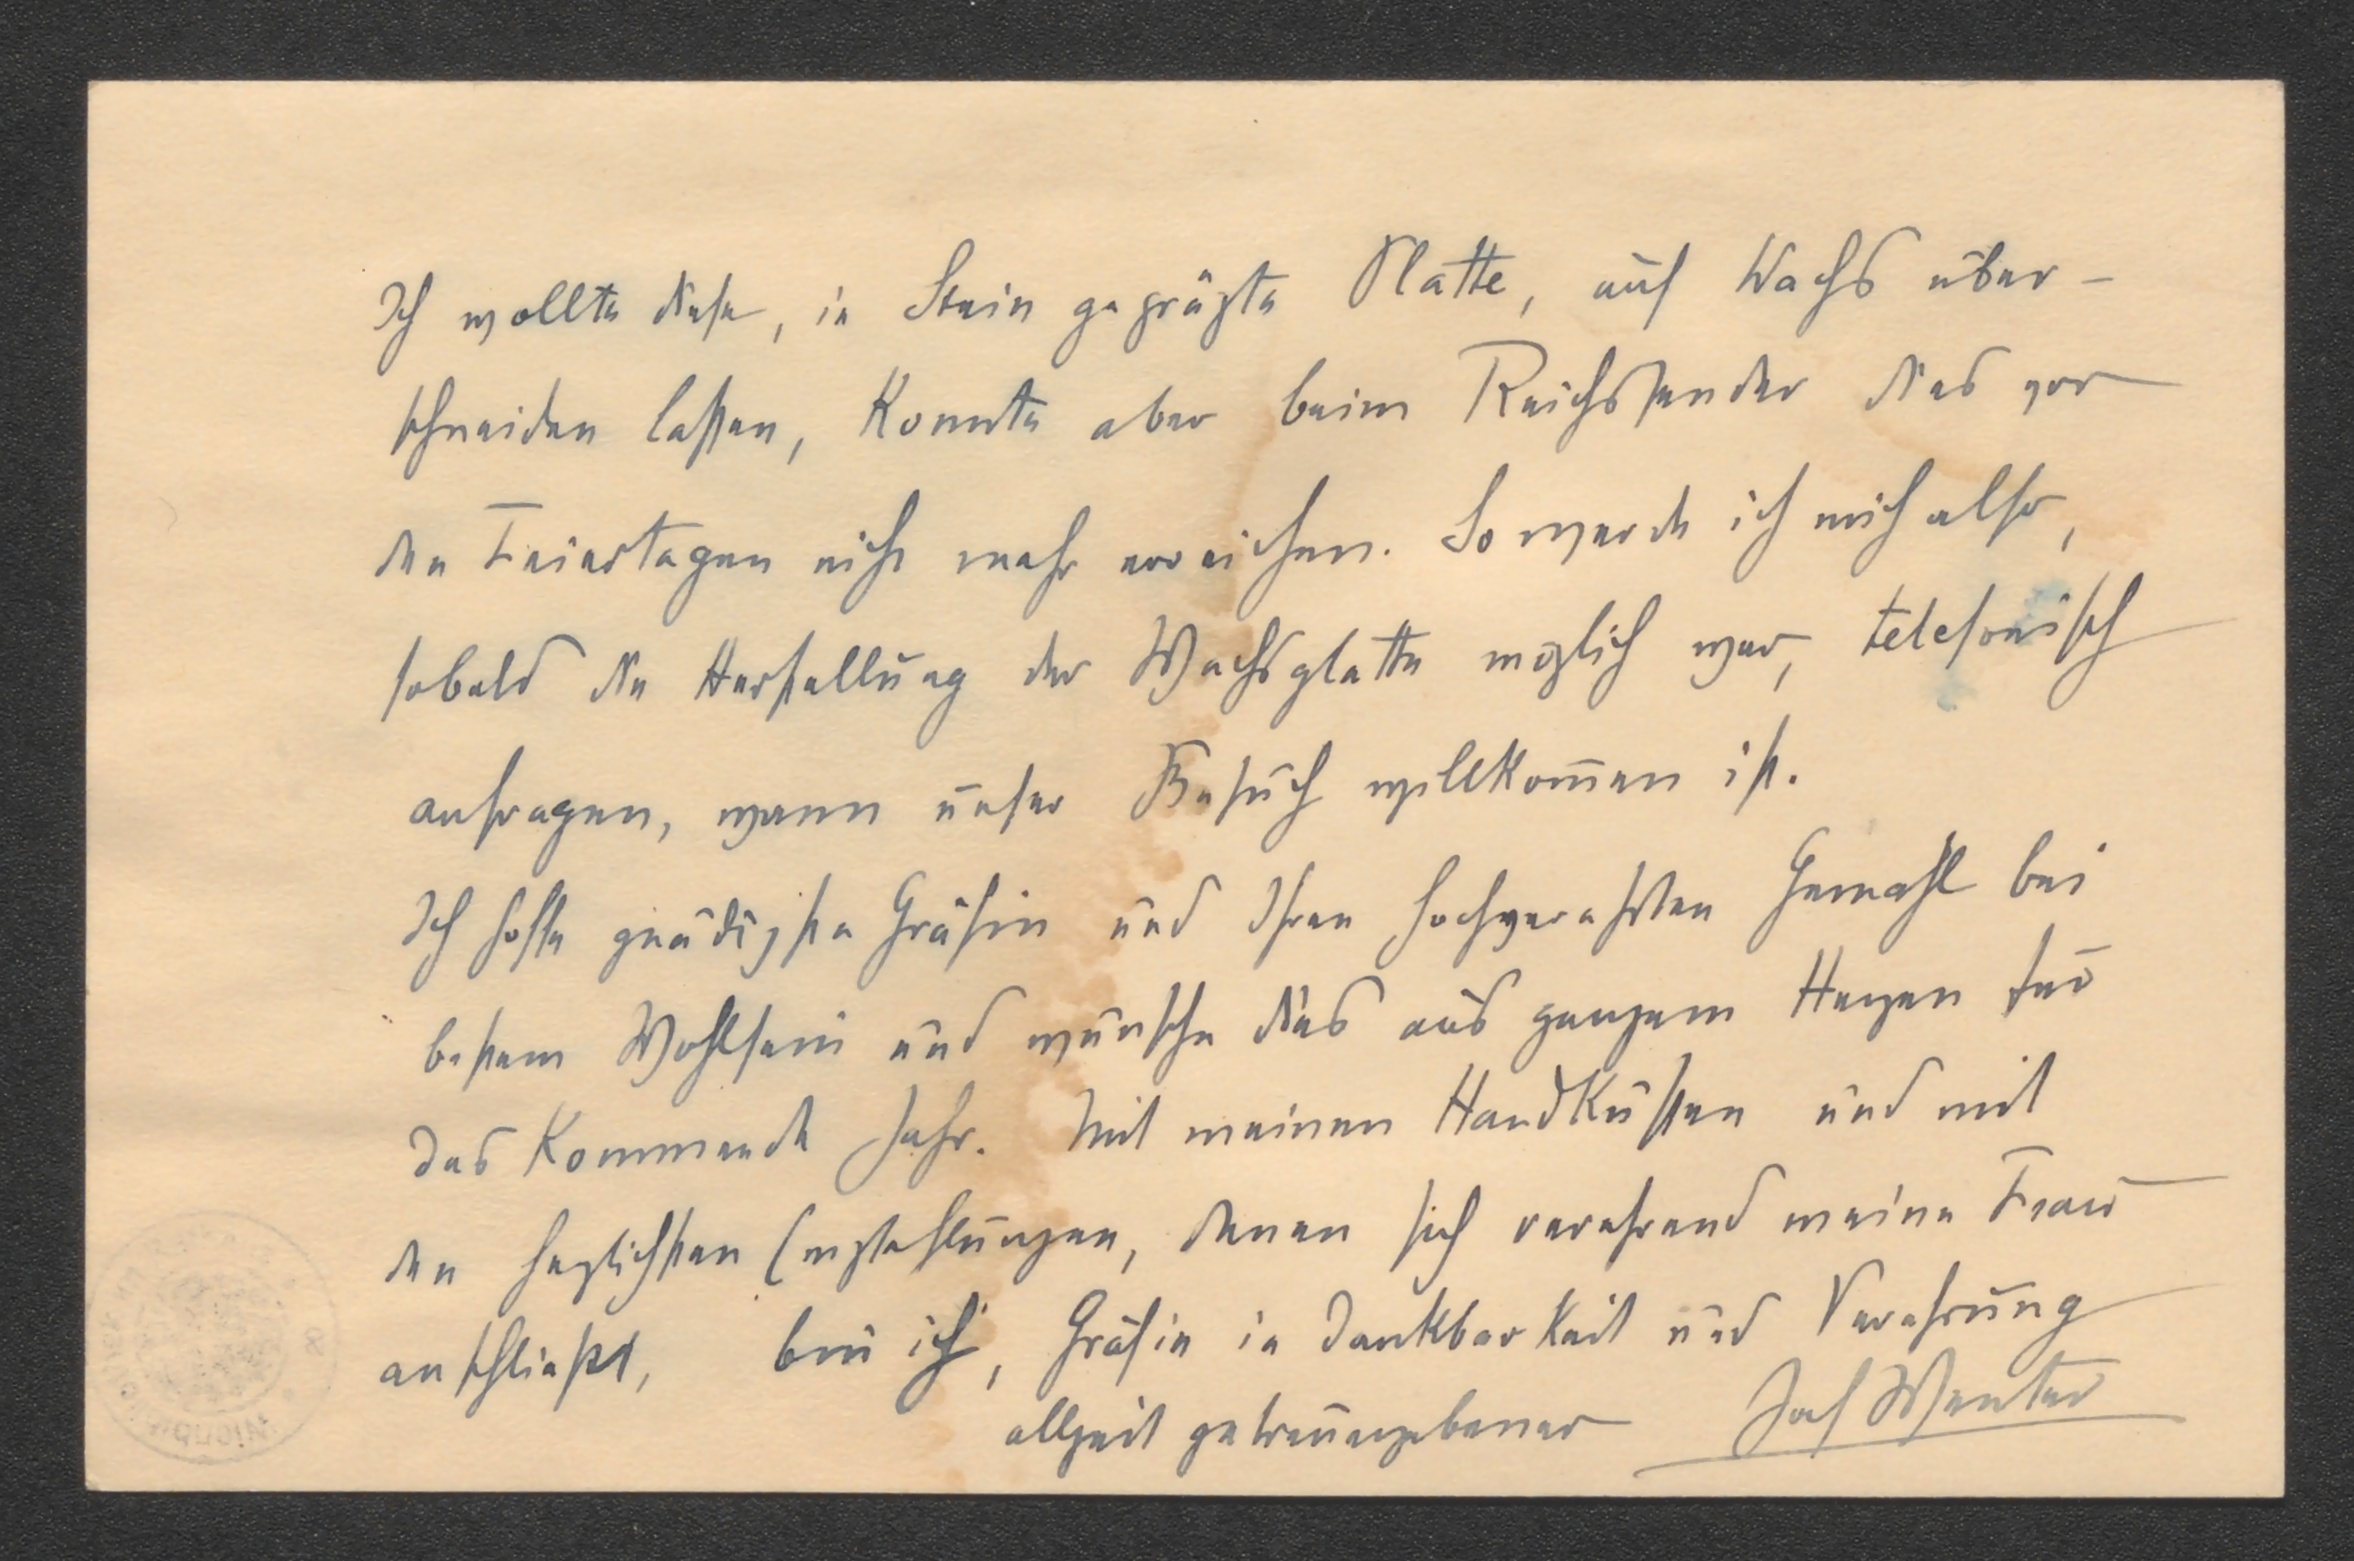 Ich wollte diese, in Stein geprägte Platte, auf Wachs über-
schneiden lassen, konnte aber beim Reichssender dies vor
den Feiertagen nicht mehr erreichen. So werde ich mich also,
sobald die Herstellung der Wachsplatte möglich war, telefonisch
anfragen, wann unser Besuch willkom̅en ist.
Ich hoffe gnädigste Gräfin und Ihren hochverehrten Gemahl bei
bestem Wohlsein und wünsche dies aus ganzem Herzen für
das kommende Jahr. Mit meinen Handküssen und mit
den herzlichsten Empfehlungen, denen sich verehrend meine Frau
anschliesst, bin ich, Gräfin in Dankbarkeit und Verehrung
allzeit getreuergebener Josef Wenter